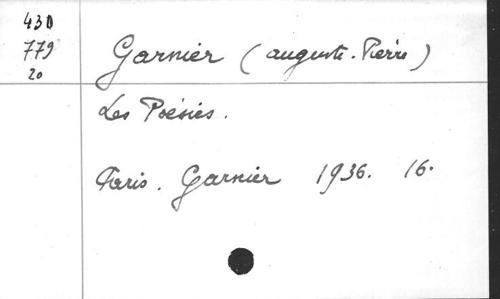 430
779
20
Garnier (Auguste-Pierre)
Les Poésies.
Paris. Garnier 1936. 16.